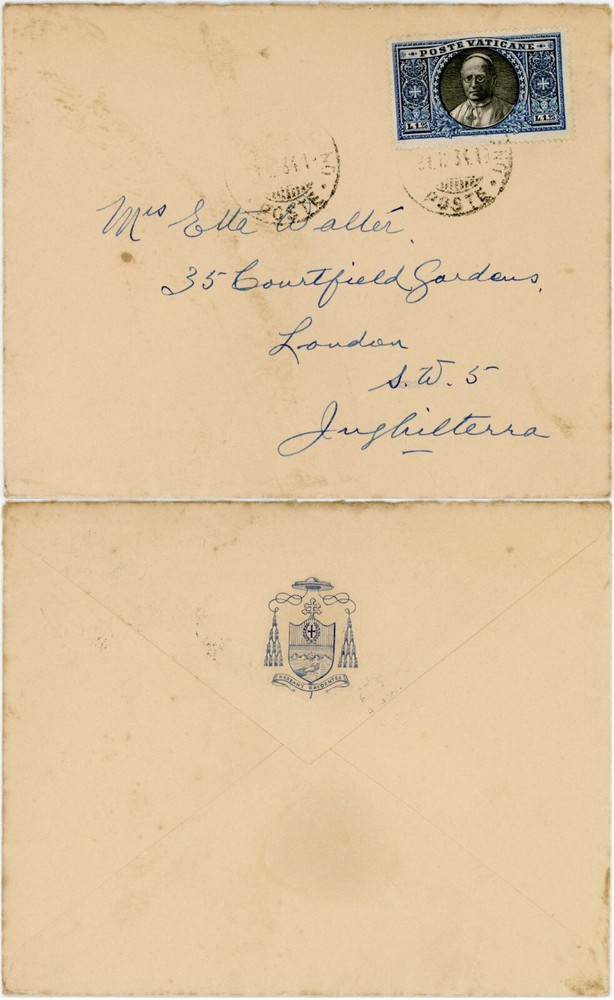 POSTE VATICANE
L. 1.25 L. 1.25
POSTE
34.1
POSTE
Mrs Etta Walter
35 Courtfield Gardens,
London
S.W. 5
Inghilterra